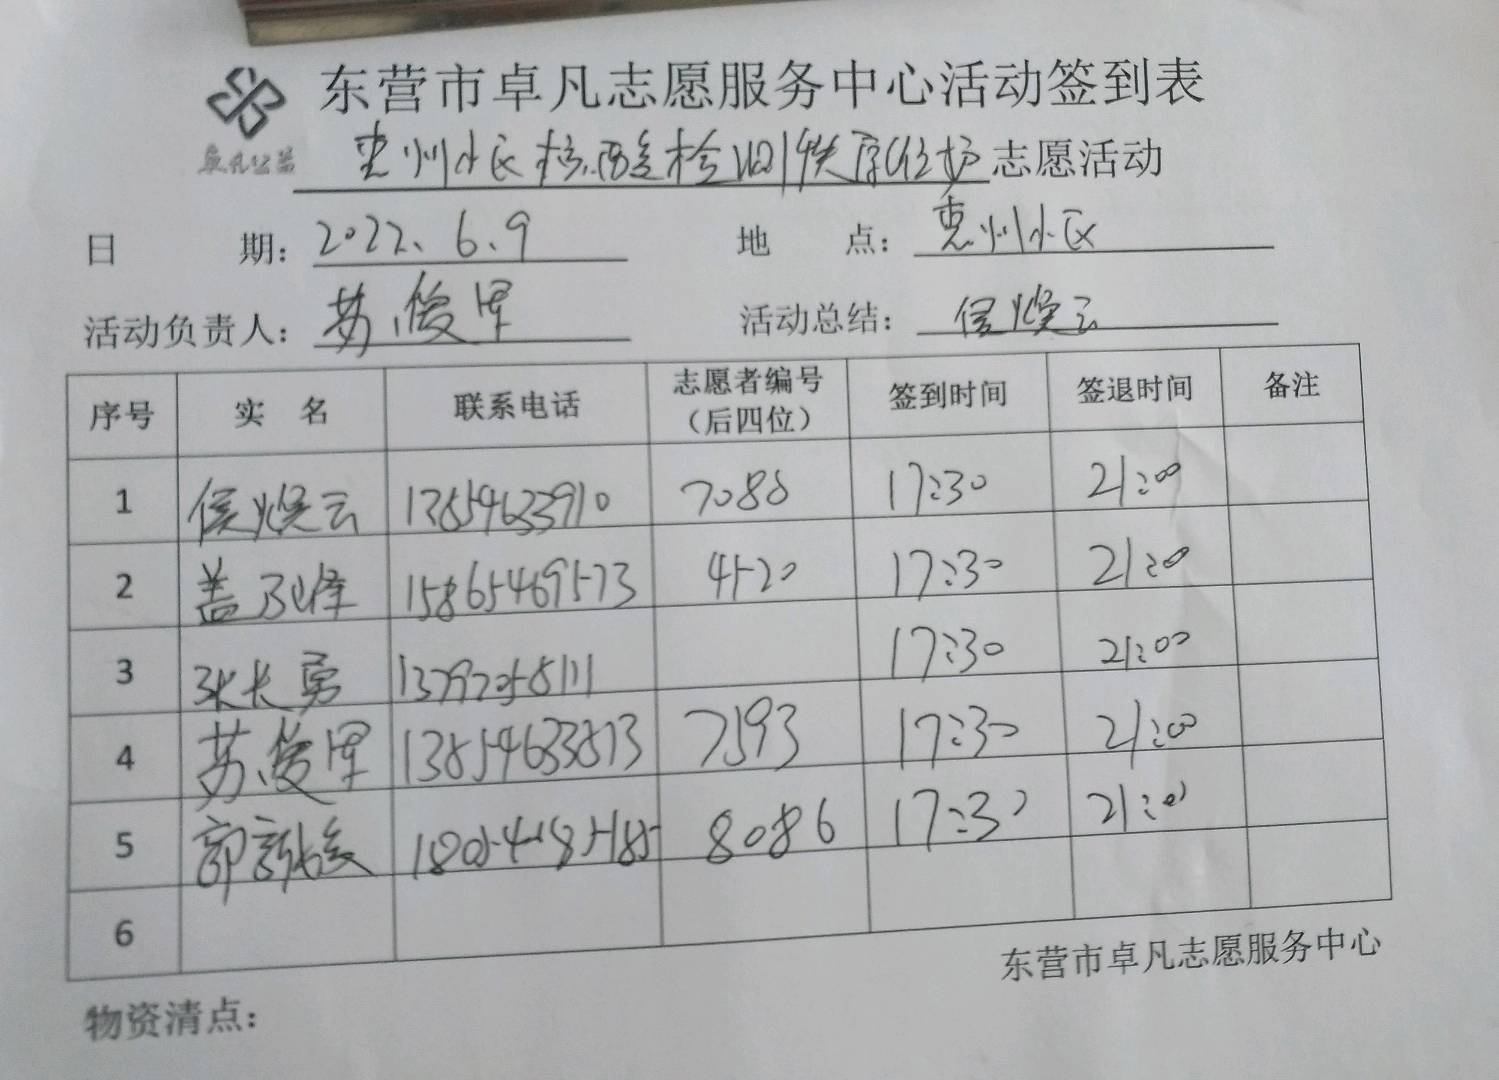 东营市卓凡志愿服务中心活动签到表
卓凡公益
惠州小区核酸检测秩序 志愿活动
日 期: 2022、6、9 地 点: 惠州小区
活动负责人: 苏俊军 活动总结: 侯焕云
序号 实 名 联系电话 志愿者编号(后四位) 签到时间 签退时间 备注
1 侯焕云 13854633910 7088 17:30 21:00
2 盖 峰 15865469573 4520 17:30 21:00
3 张长勇 13792058111 17:30 21:00
4 苏俊军 13854633873 7593 17:30 21:00
5 郭 18054685185 8086 17:30 21:00
6
东营市卓凡志愿服务中心
物资清点: